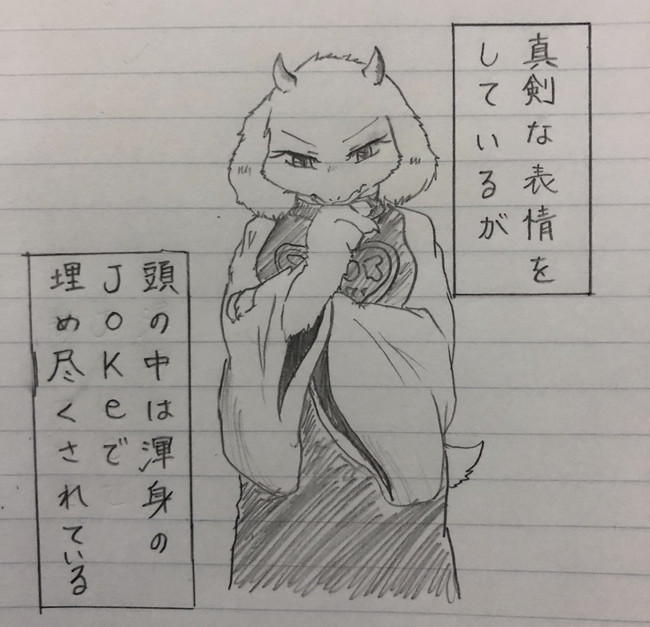 真剣な表情を
しているが
頭の中は渾身の
Jokeで
埋め尽くされている